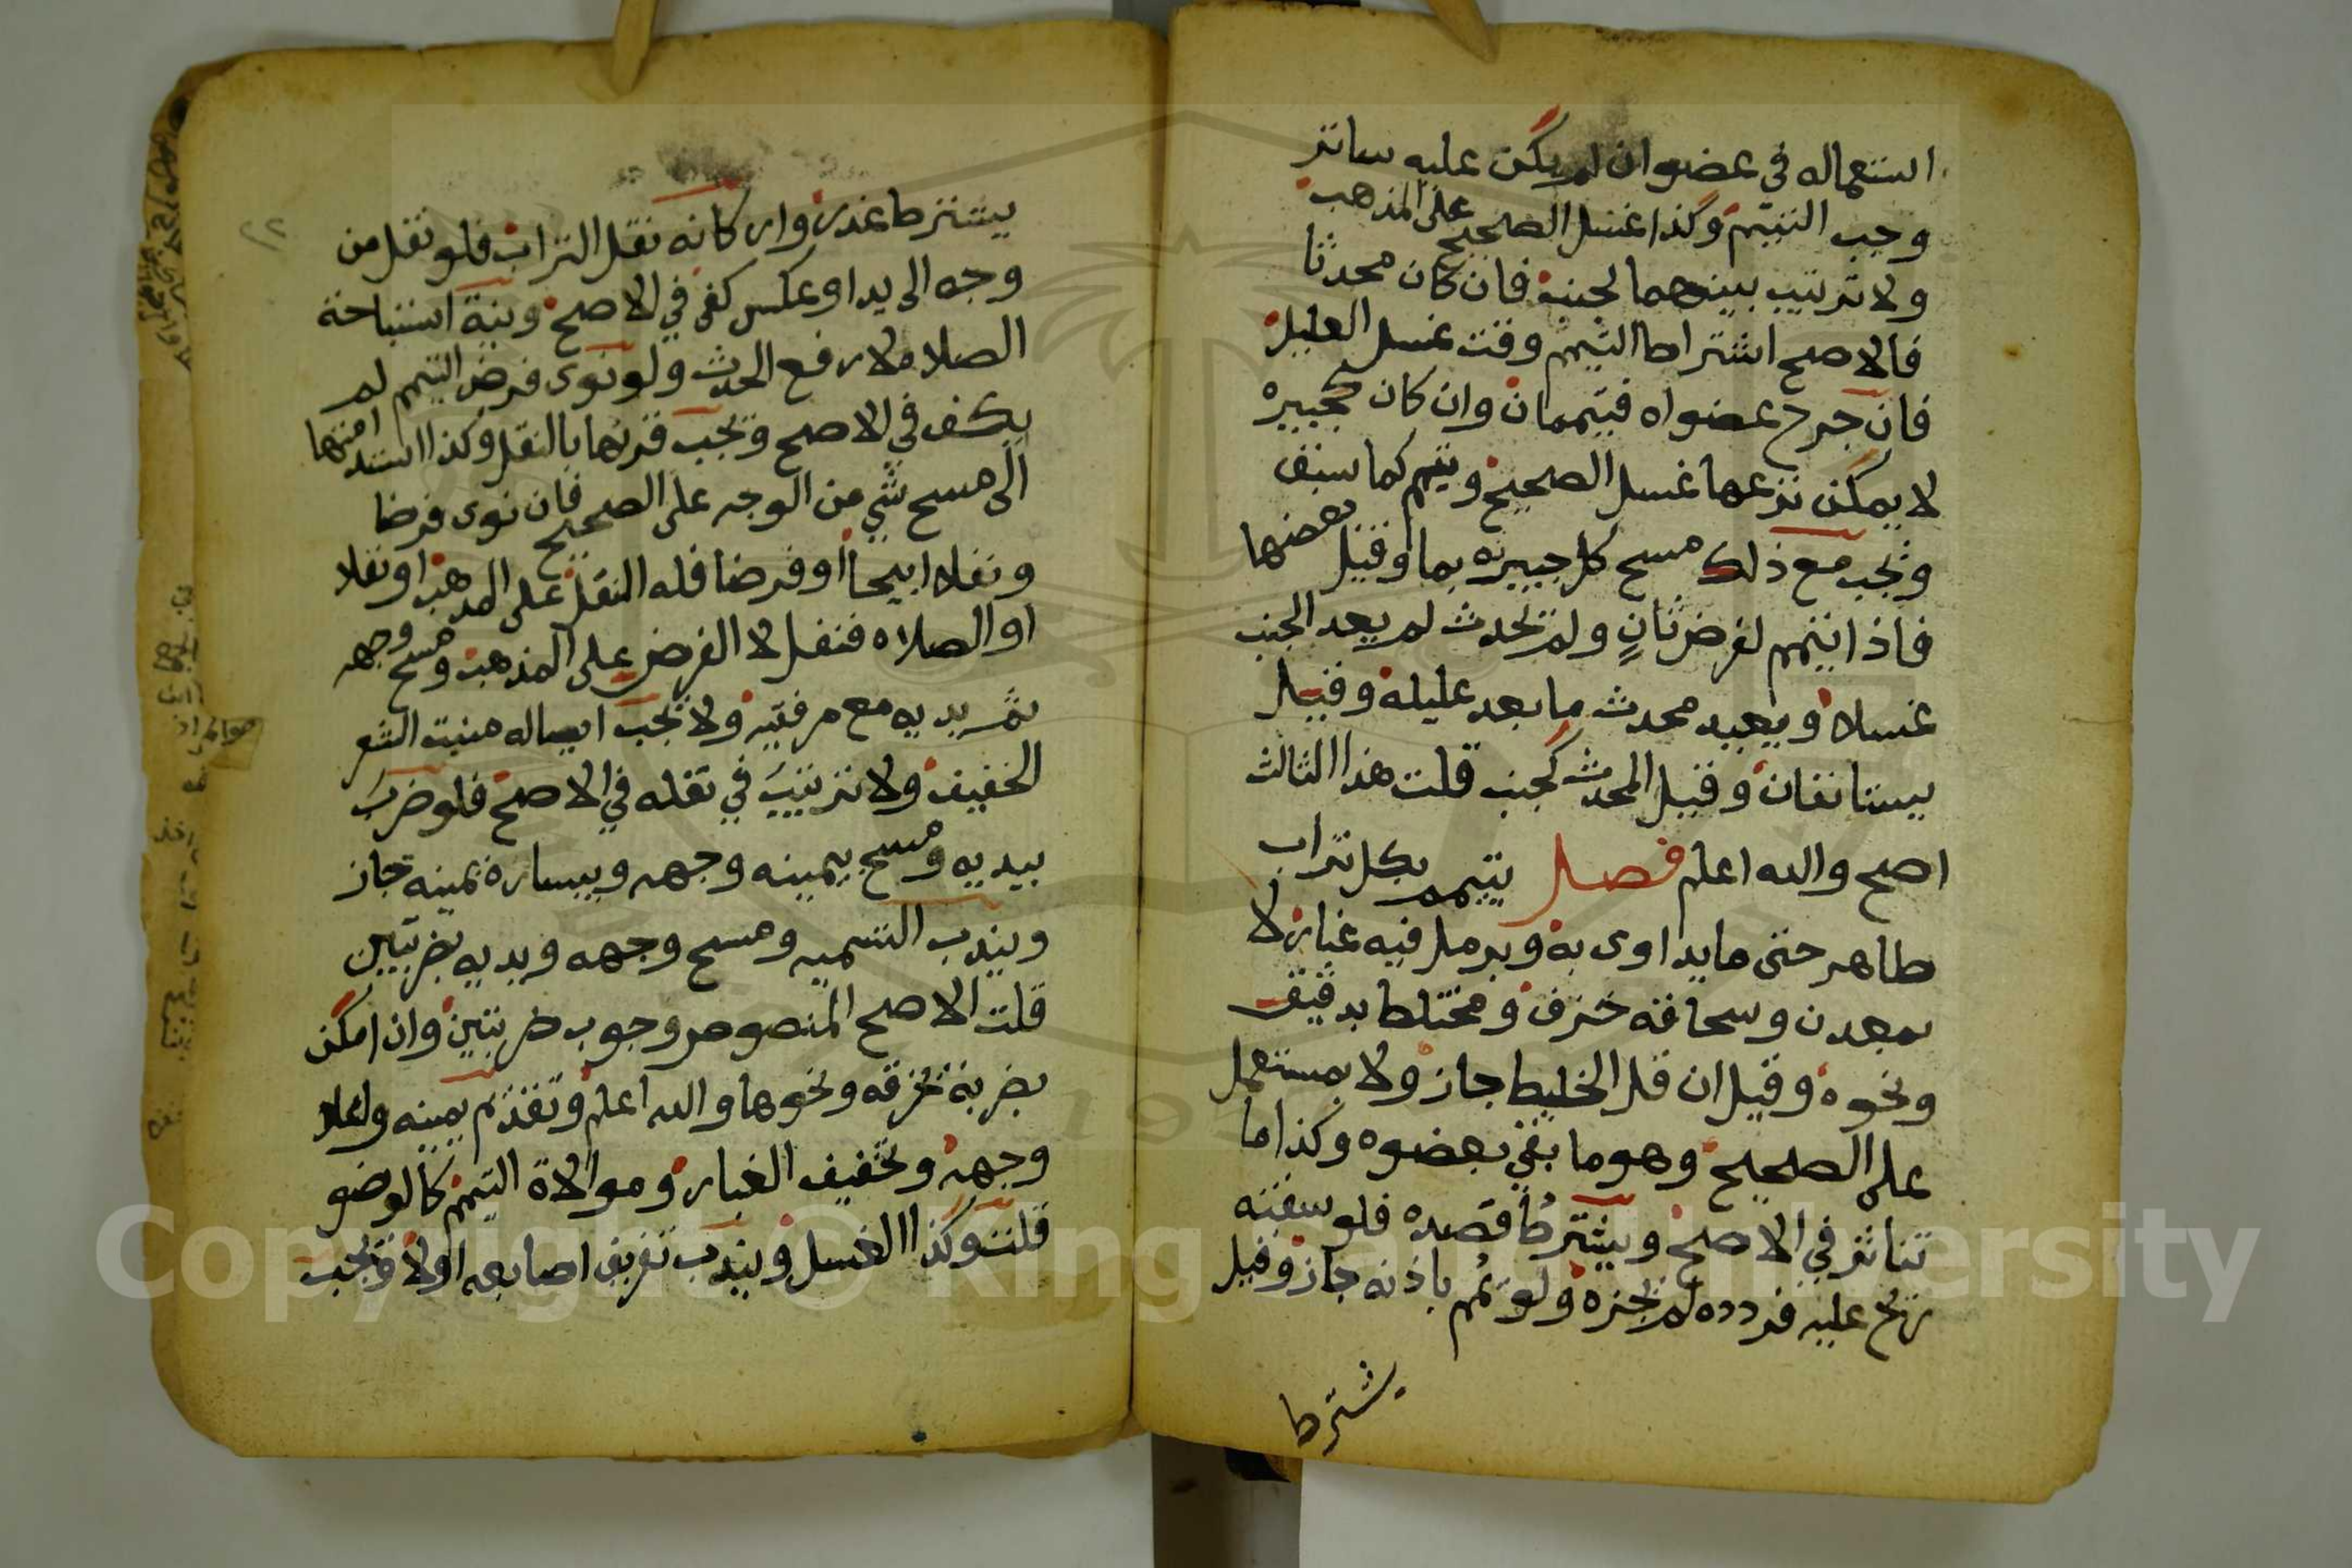 استعماله في عضو ان لم يكن عليه ساتر
وجب التيمم وكذا غسل الصحيح على المذهب
ولا ترتيب بينهما لجنب فان كان محدثا
فالاصح اشتراط التيمم وقت غسل العليل
فان جرح عضواه فتيممان وان كان كجبيره
لا يمكن نزعها غسل الصحيح ويتيم كما سبق
ويجب مع ذلك مسح كل جبيرته بما وقيل بعضها
فاذا تيمم لفرض ثانٍ ولم يحدث لم يعد الجنب
غسلا ويعيد محدث ما بعد عليله وقيل
يستانفان وقيل المحدث كجنب قلت هذا الثالث
اصح والله اعلم فصل يتيمم بكل تراب
طاهر حتى ما يداوى به وبرمل فيه غبار لا
بمعدن وسحاقة خزف ومختلط بدقيق
ونحوه وقيل ان قل الخليط جاز ولا بمستعمل
على الصحيح وهو ما بقي بعضوه وكذا ما
تناثر في الاصح ويشترط قصده فلو سفته
ريح عليه فردده لم يجزه ولو يمم باذنه جاز وقيل
يشترط
٢٢
يشترط عذر واركانه نقل التراب فلو نقل من
وجه الى يد او عكس كفى في الاصح ونية استباحة
الصلاه لا رفع الحدث ولو نوى فرض التيمم لم
يكف في الاصح ويجب قرنها بالنقل وكذا استدامتها
الى مسح شي من الوجه على الصحيح فان نوى فرضا
ونفلا ابيحا او فرضا فله النفل على المذهب او نفلا
او الصلاه فنفل لا الفرض على المذهب ومسح وجهه
ثم يديه مع مرفقيه ولا يجب ايصاله منبت الشعر
الخفيف ولا ترتيب في نقله في الاصح فلو ضرب
بيديه ومسح بيمينه وجهه وبيساره يمينه جاز
ويندب التسميه ومسح وجهه ويديه بضربتين
قلت الاصح المنصوص وجوب ضربتين وان امكن
بضربة بخرقه ونحوها والله اعلم وتقديم يمينه واعلا
وجهه وتخفيف الغبار وموالاة التيمم كالوضو
قلت وكذا الغسل ويندب تفريق اصابعه اولا ويجب
Copyright © King Saud University